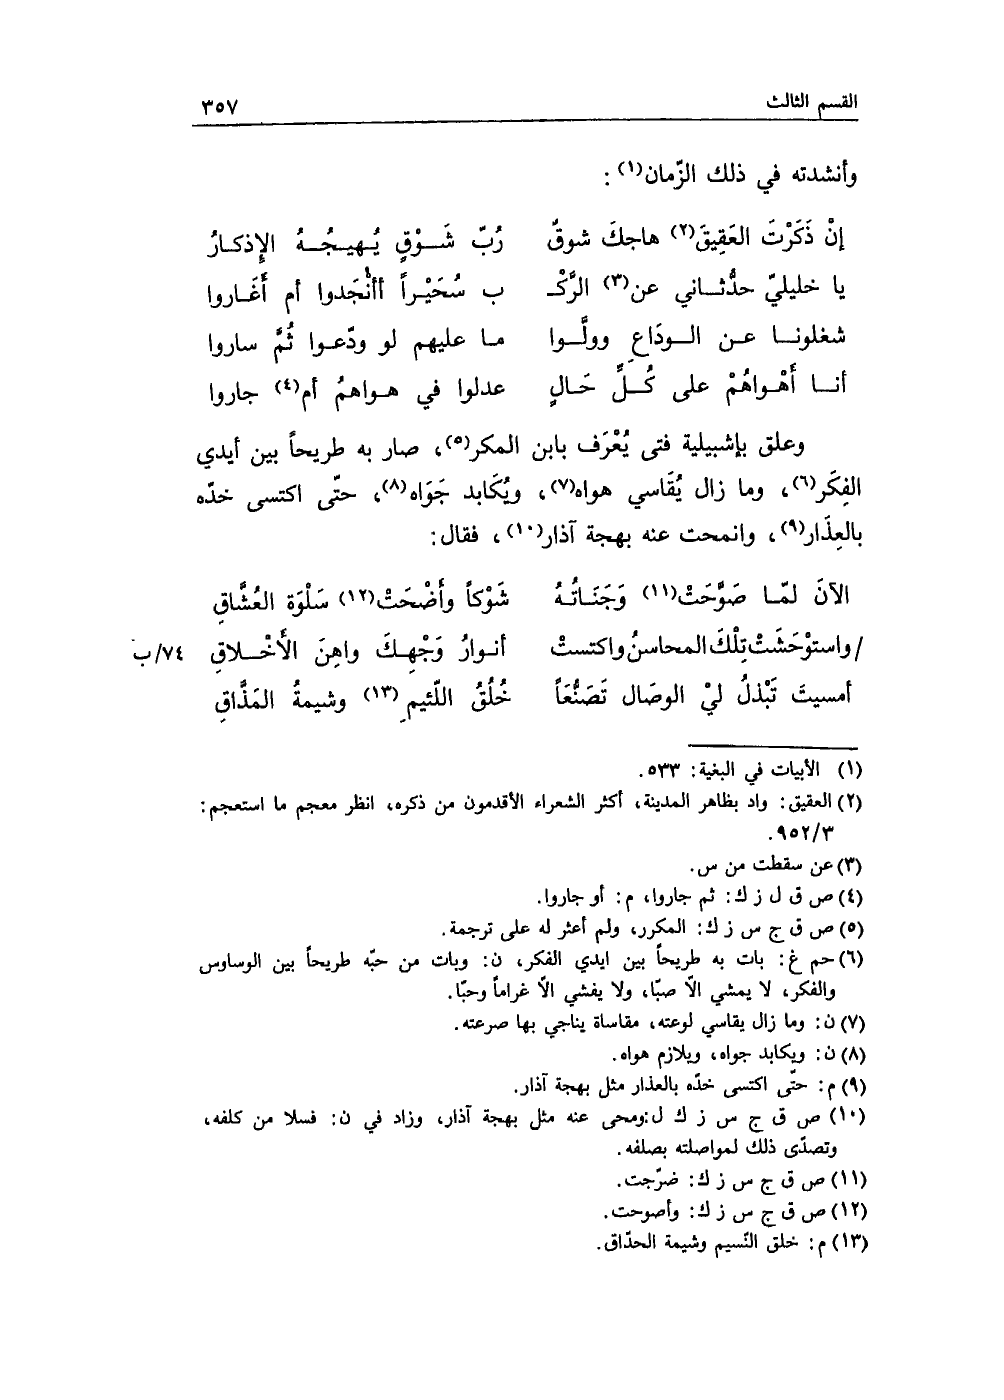 القسم الثالث ٣٥٧
وأنشدته في ذلك الزّمان(١) :
إنْ ذَكَرْتَ العَقِيقَ(٢) هاجكَ شوقٌ رُبّ شَــوْقٍ يُـهيـجُــهُ الإذكـارُ
يا خليليّ حدُّثــاني عن(٣) الرَّكْـ ب سُحَيْـراً أأنْجَدوا أم أَغَـاروا
شغلونــا عـن الــودَاعِ وولَّــوا مـا عليهم لو ودّعـوا ثُمَّ ساروا
أنــا أَهْـواهُمْ على كُـلِّ حَـالٍ عدلوا في هـواهمُ أم(٤) جاروا
وعلق بإشبيلية فتى يُعْرَف بابن المكر(٥)، صار به طريحاً بين أيدي
الفِكَر(٦)، وما زال يُقَاسي هواه(٧)، ويُكَابد جَوَاه(٨)، حتّى اكتسى خدّه
بالعِذَار(٩)، وانمحت عنه بهجة آذار(١٠)، فقال:
الآنَ لمّـا صَوَّحَتْ(١١) وَجَنَاتُـهُ شَوْكاً وأَضْحَتْ(١٢) سَلْوَة العُشَّاقِ
/واستوْحَشَتْ تِلْكَ المحاسنُ واكتستْ أنـوارُ وَجْهِـكَ واهِنَ الأَخْـلاقِ ٧٤/ب
أمسيتَ تَبْذلُ ليْ الوصَال تَصَنُّعَاً خُلُقُ اللّئيمِ(١٣) وشيمةُ المَذَّاقِ
(١) الأبيات في البغية: ٥٣٣.
(٢) العقيق: واد بظاهر المدينة، أكثر الشعراء الأقدمون من ذكره، انظر معجم ما استعجم:
٩٥٢/٣.
(٣) عن سقطت من س.
(٤) ص ق ل ز ك: ثم جاروا، م: أو جاروا.
(٥) ص ق ج س ز ك: المكرر، ولم أعثر له على ترجمة.
(٦) حم غ: بات به طريحاً بين ايدي الفكر، ن: وبات من حبّه طريحاً بين الوساوس
والفكر، لا يمشي الاّ صبّا، ولا يفشي الاّ غراماً وحبّا.
(٧) ن: وما زال يقاسي لوعته، مقاساة يناجي بها صرعته.
(٨) ن: ويكابد جواه، ويلازم هواه.
(٩) م: حتّى اكتسى خدّه بالعذار مثل بهجة آذار.
(١٠) ص ق ج س ز ك ل:ومحى عنه مثل بهجة آذار، وزاد في ن: فسلا من كلفه،
وتصدّى ذلك لمواصلته بصلفه.
(١١) ص ق ج س ز ك: ضرّجت.
(١٢) ص ق ج س ز ك: وأصوحت.
(١٣) م: خلق النّسيم وشيمة الحدّاق.